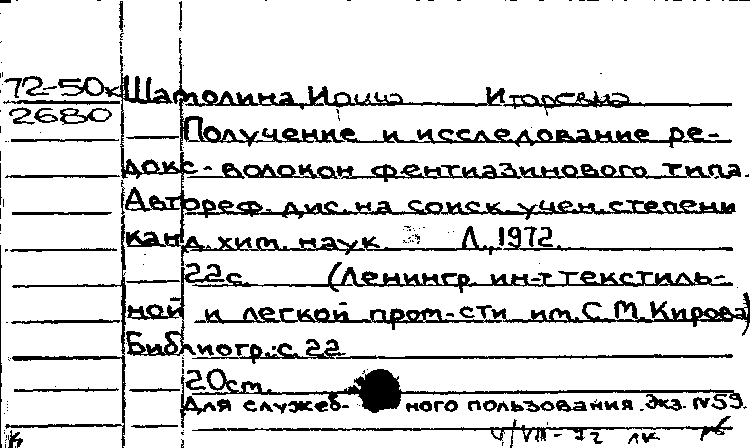 72-50к Шатолина, Ирина Игоревна
2680
Получение и исследование ре-
докс-волокон фентиазинового типа.
Автореф. дис. на соиск. учен. степени
канд. хим. наук. Л., 1972.
22 с. (Ленингр. ин-т текстиль-
ной и легкой пром-сти им. С.М. Кирова)
Библиогр.: с. 22
20 см.
Для служеб- ного пользования. Экз. №59.
4/VIII-72 лк